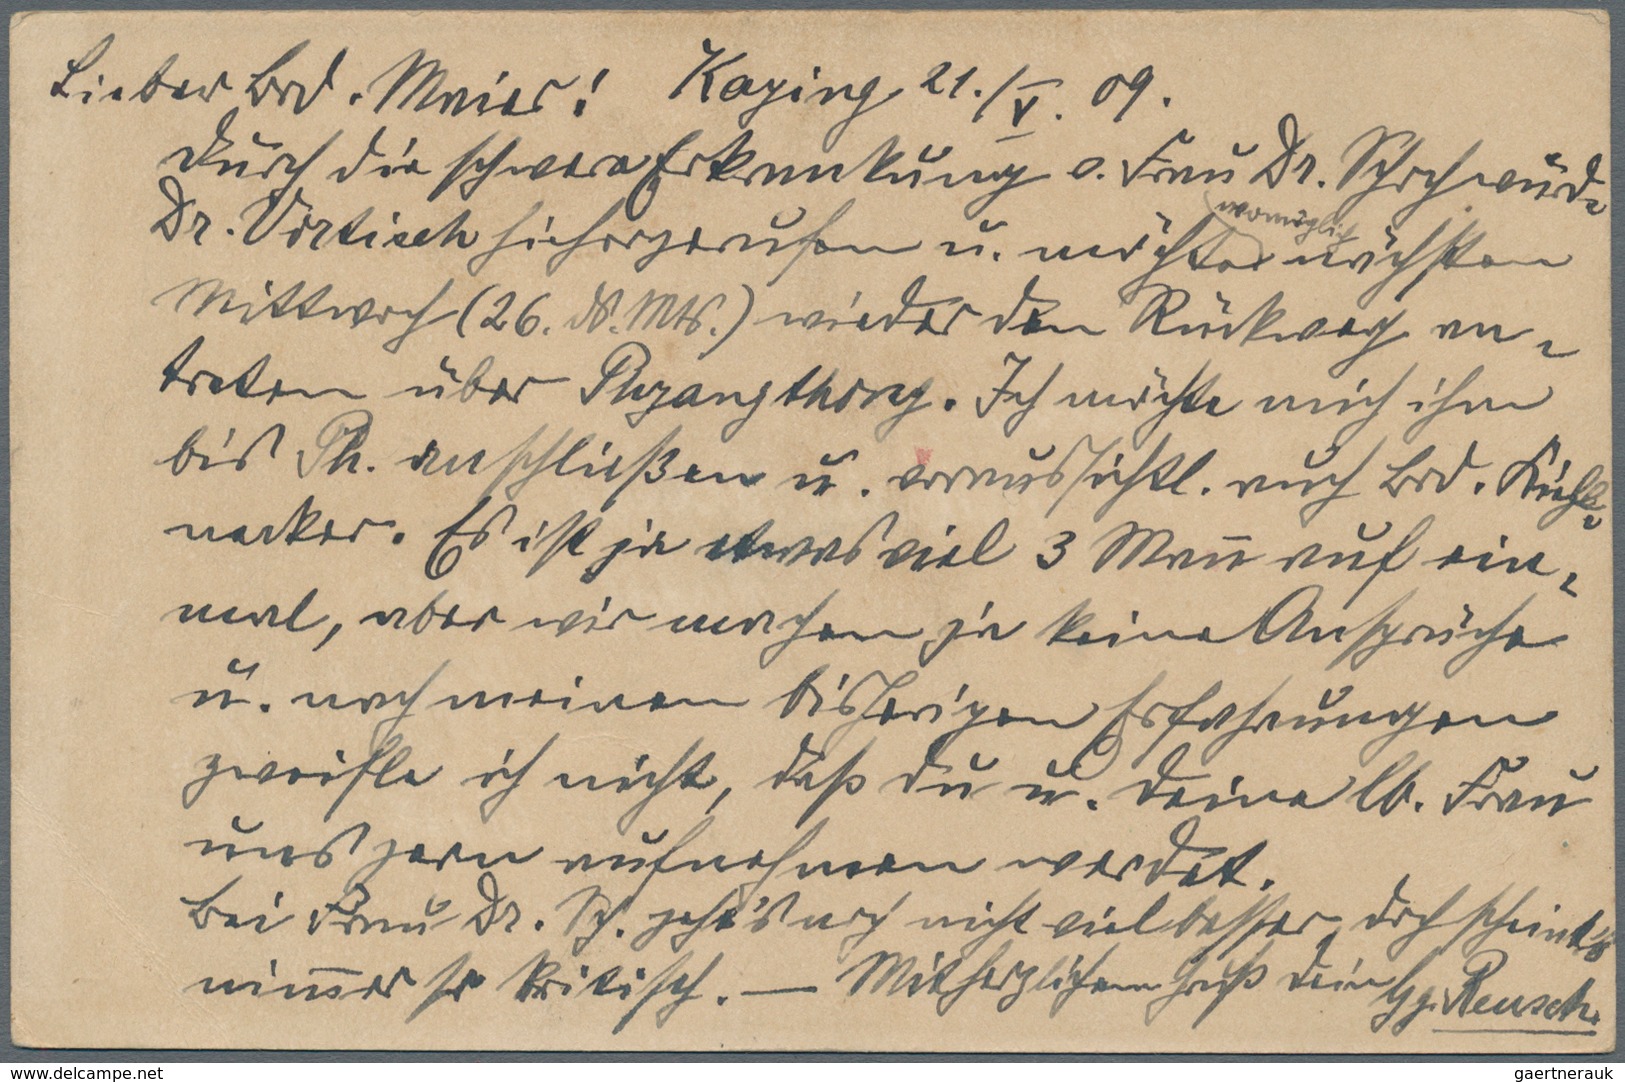 Lieber Brd. Maier! Kaying 21./V. 09.
Durch die schwere Erkrankung v. Frau Dr. Schoch wurde
Dr. Vortisch hierhergerufen u. möchte womöglich nächsten
Mittwoch (26. ds. Mts.) wieder den Rückweg an-
treten über Phyangthong. Ich möchte mich ihm
bis Ph. anschließen u. voraussichtl. auch Brd. Kiehl-
necker. Es ist ja etwas viel 3 Mann auf ein-
mal, aber wir machen ja keine Ansprüche
u. nach meinen bisherigen Erfahrungen
zweifle ich nicht, daß du u. deine lb. Frau
uns gern aufnehmen werdet.
Bei Frau Dr. Sch. geht's noch nicht viel besser, doch scheint's
nimmer so kritisch. — Mit herzlichem Gruß dein Gg. Reusch.
delcampe.net
gaertnerauk